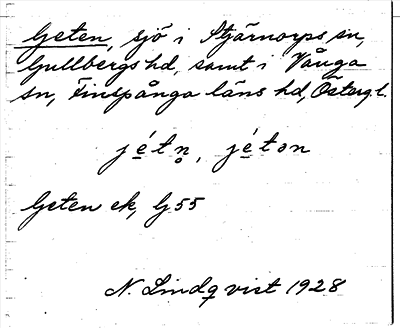 Geten, sjö i Stjärnorps sn,
Gullbergs hd, samt i Vånga
sn, Finspånga läns hd, Östergl.
jétn̥, jéton
Geten ek, G 55
N. Lindqvist 1928